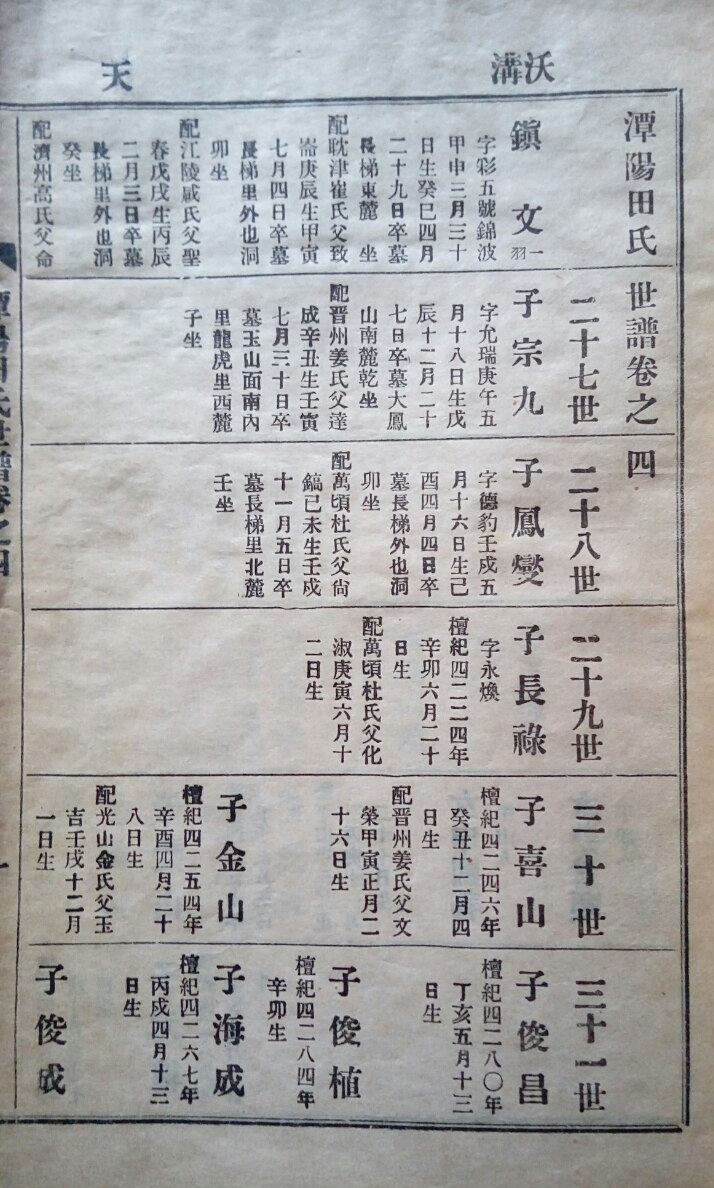 沃溝
天
潭陽田氏世譜卷之四
鎭文
一
羽
字彩五號錦波
甲申三月三十
日生癸巳四月
二十九日卒墓
長梯東麓 坐
配耽津崔氏父致
崙庚辰生甲寅
七月四日卒墓
長梯里外也洞
卯坐
配江陵咸氏父聖
春戊戌生丙辰
二月三日卒墓
長梯里外也洞
癸坐
配濟州高氏父命
二十七世
子宗九
字允瑞庚午五
月十八日生戊
辰十二月二十
七日卒墓大鳳
山南麓乾坐
配晋州姜氏父達
成辛丑生壬寅
七月三十日卒
墓玉山面南內
里龍虎里西麓
子坐
二十八世
子鳳燮
字德豹壬戌五
月十六日生己
酉四月四日卒
墓長梯外也洞
卯坐
配萬頃杜氏父尙
鎬己未生壬戌
十一月五日卒
墓長梯里北麓
壬坐
二十九世
子長祿
字永煥
檀紀四二二四年
辛卯六月二十
日生
配萬頃杜氏父化
淑庚寅六月十
二日生
三十世
子喜山
檀紀四二四六年
癸丑十二月四
日生
配晋州姜氏父文
榮甲寅正月二
十六日生
子金山
檀紀四二五四年
辛酉四月二十
八日生
配光山金氏父玉
吉壬戌十二月
一日生
三十一世
子俊昌
檀紀四二八〇年
丁亥五月十三
日生
子俊植
檀紀四二八四年
辛卯生
子海成
檀紀四二六七年
丙戌四月十三
日生
子俊成
潭陽田氏世譜卷之四
一